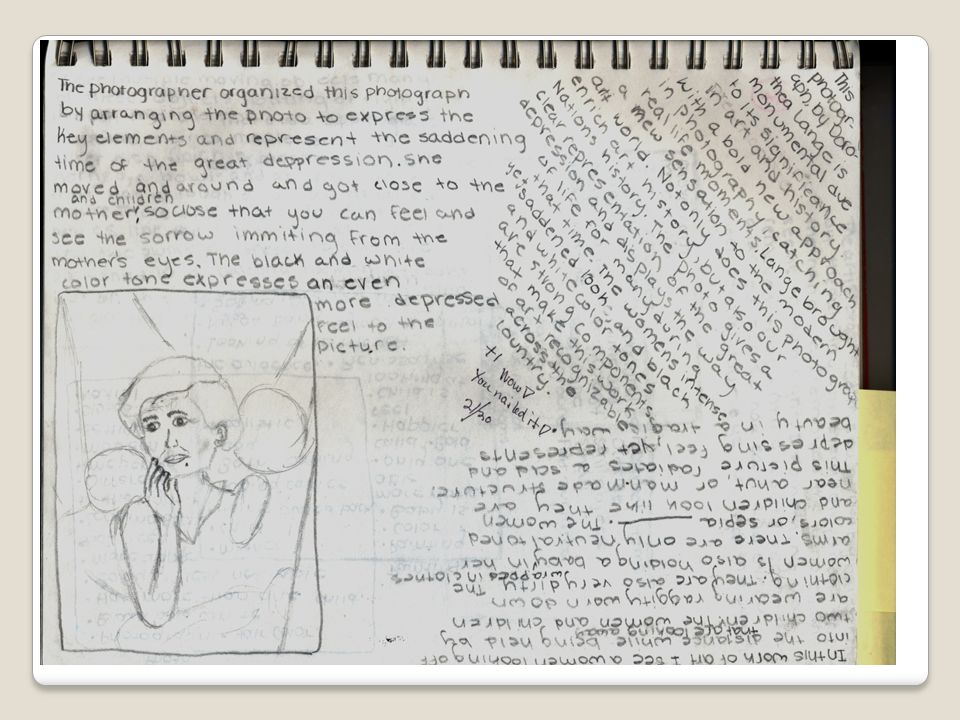 The photographer organized this photograph
by arranging the photo to express the
key elements and represent the saddening
time of the great deppression. she
moved and around and got close to the
and children
mother, so close that you can feel and
see the sorrow immiting from the
mother's eyes. The black and white
color tone expresses an even
more depressed
feel to the
picture.
This
photogr-
aph, by Doro-
thea Lange is
monumental due
to its significance
in the art and history
with a bold new approach
in photography, catching
a real life moment. Lange brought
a new sensation to the modern
art world. Not only does this photograph
enrich art history, but also our
Nations history. The photo gives a
clear representation of the great
depression and displays the way
of life for many during
yet that time. The womens intense
saddened look, and black
and white color tone
are stong componens
that make this work
of art recognizable
across the
country.
+1
Wow!
You nailed it!
2/20
In this work of art I see a women looking off
into the distance while being held by
that are looking away
two children. The women and children
are wearing raggity worn down
clothing. They are also very dirty. The
wrapped in clothes
women is also holding a baby in her
arms. There are only neutral toned
colors, or sepia. The women
and children look like they are
near a hut, or man-made structure.
This picture radiates a said and
depressing feel, yet represents
beauty in a tragic way.